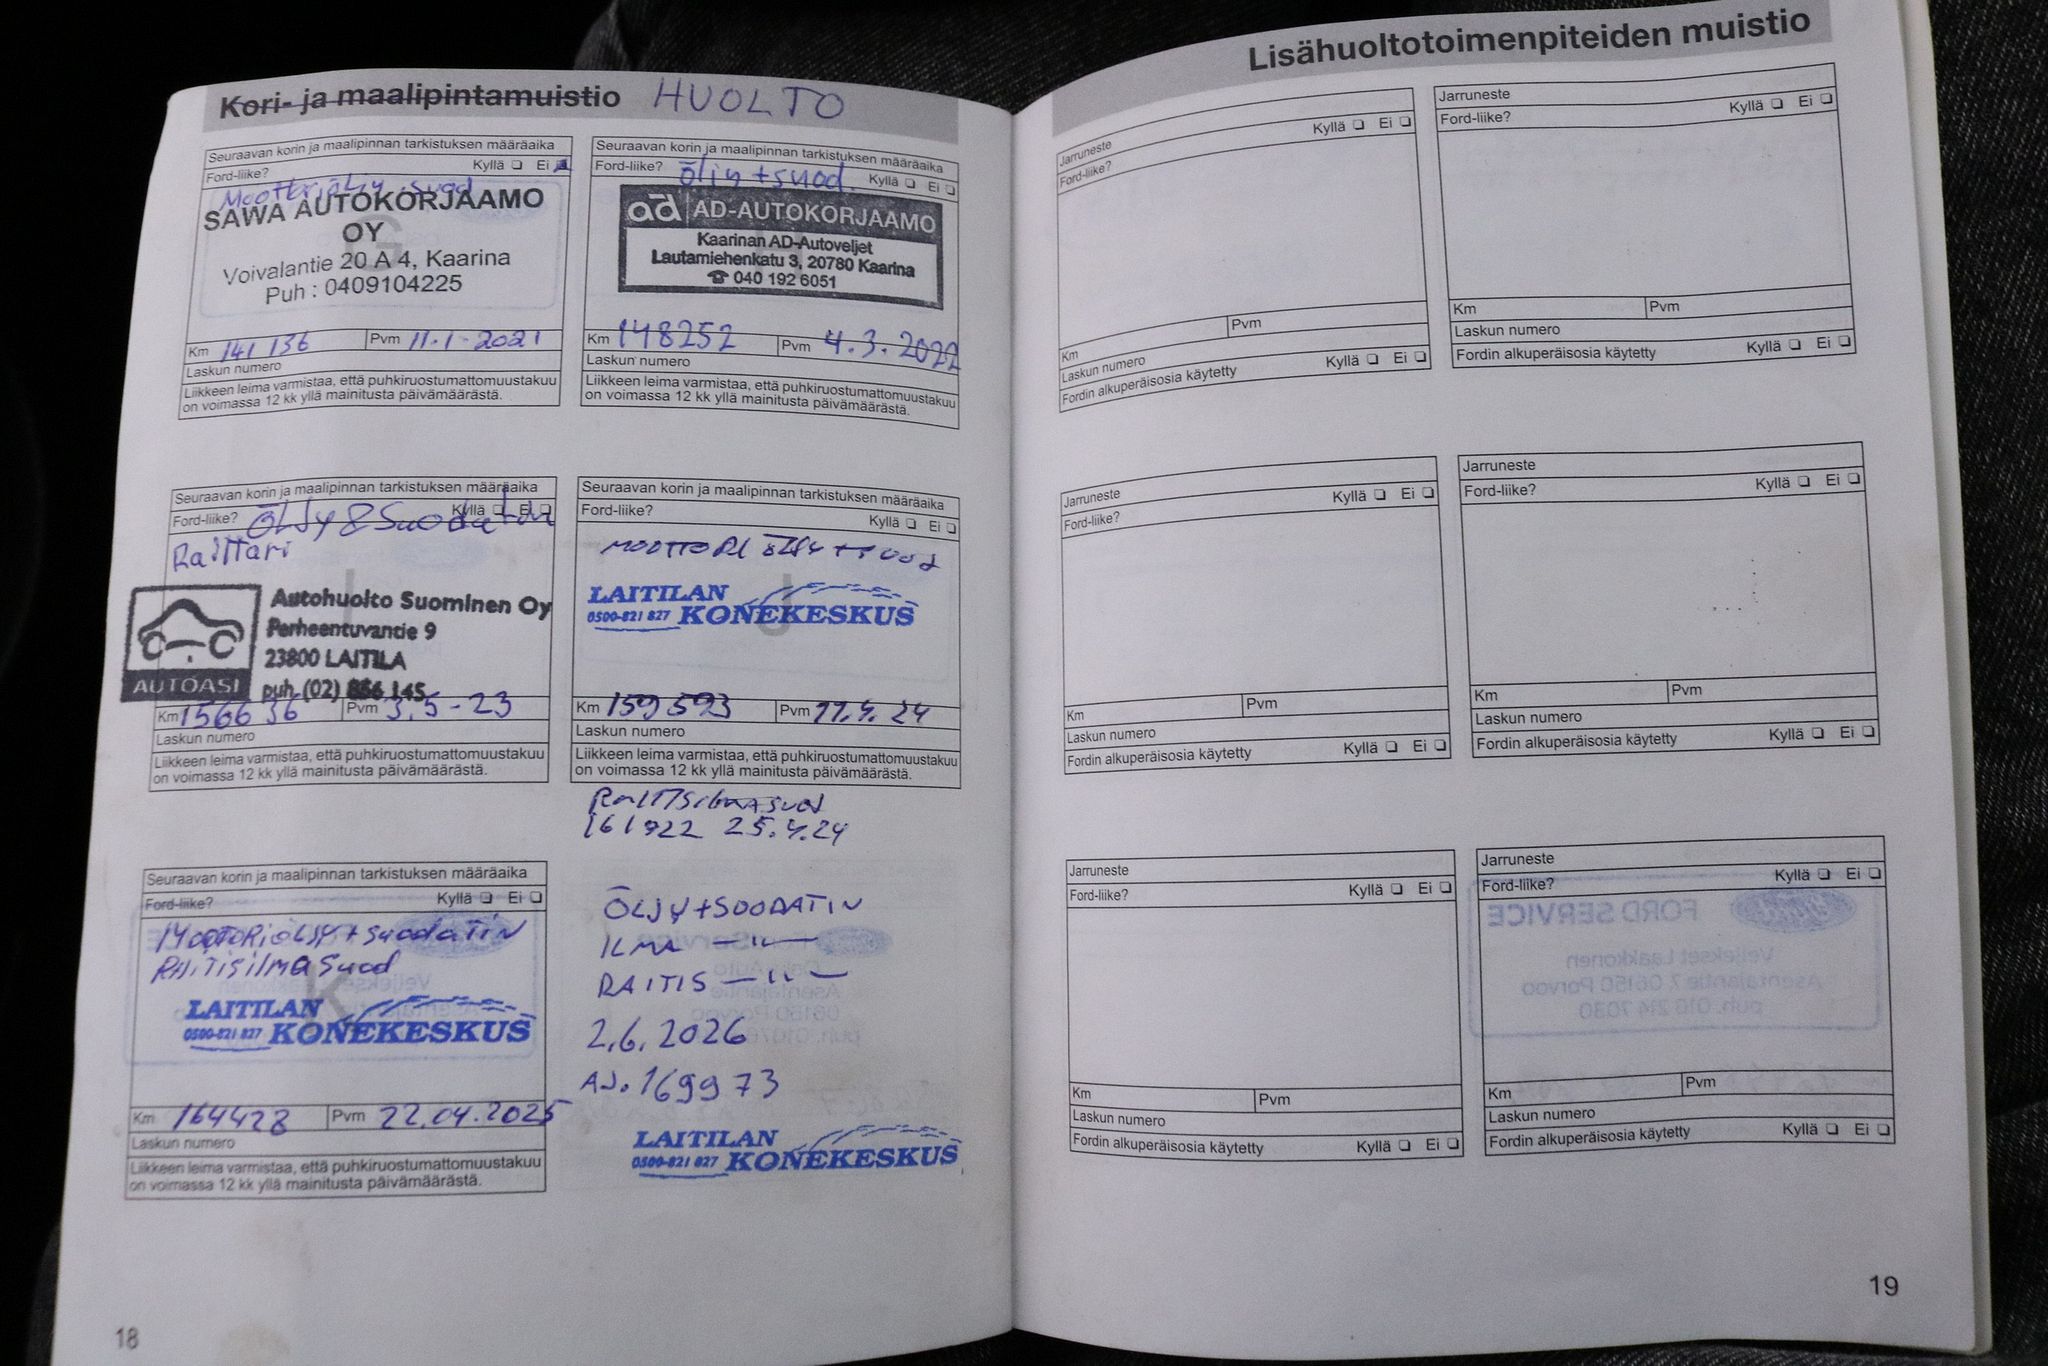 Kori- ja maalipintamuistio HUOLTO
Seuraavan korin ja maalipinnan tarkistuksen määräaika
Ford-liike? Kyllä ❏ Ei ❏
Moottoriöljy suod
SAWA AUTOKORJAAMO
OY
G
Voivalantie 20 A 4, Kaarina
Puh : 0409104225
Km 141 136 Pvm 11.1-2021
Laskun numero
Liikkeen leima varmistaa, että puhkiruostumattomuustakuu
on voimassa 12 kk yllä mainitusta päivämäärästä.
Seuraavan korin ja maalipinnan tarkistuksen määräaika
Ford-liike? öljy + suod. Kyllä ❏ Ei ❏
ad AD-AUTOKORJAAMO
Kaarinan AD-Autoveljet
Lautamiehenkatu 3, 20780 Kaarina
☎ 040 192 6051
Km 148252 Pvm 4.3.2022
Laskun numero
Liikkeen leima varmistaa, että puhkiruostumattomuustakuu
on voimassa 12 kk yllä mainitusta päivämäärästä.
Seuraavan korin ja maalipinnan tarkistuksen määräaika
Ford-liike? Kyllä ❏ Ei ❏
Öljy & Suodatin
Raittari
Autohuolto Suominen Oy
Perheentuvantie 9
23800 LAITILA
AUTOASI puh. (02) 856 145
Km 156636 Pvm 3.5-23
Laskun numero
Liikkeen leima varmistaa, että puhkiruostumattomuustakuu
on voimassa 12 kk yllä mainitusta päivämäärästä.
Seuraavan korin ja maalipinnan tarkistuksen määräaika
Ford-liike? Kyllä ❏ Ei ❏
MOOTTORI ÖLJY + suod
J
LAITILAN
0500-821 827 KONEKESKUS
Km 159593 Pvm 17.4.24
Laskun numero
Liikkeen leima varmistaa, että puhkiruostumattomuustakuu
on voimassa 12 kk yllä mainitusta päivämäärästä.
161922 25.4.24
Seuraavan korin ja maalipinnan tarkistuksen määräaika
Ford-liike? Kyllä ❏ Ei ❏
MOOTTORIÖLJY + suodaTIN
RAITISILMA Suod
K
LAITILAN
0500-821 827 KONEKESKUS
Km 164428 Pvm 22.04.2025
Laskun numero
Liikkeen leima varmistaa, että puhkiruostumattomuustakuu
on voimassa 12 kk yllä mainitusta päivämäärästä.
ÖLJY + SUODATIN
ILMA —"—
RAITIS —"—
2.6.2026
AJ. 169973
LAITILAN
0500-821 827 KONEKESKUS
18
Lisähuoltotoimenpiteiden muistio
Jarruneste
Ford-liike? Kyllä ❏ Ei ❏
Km Pvm
Laskun numero
Fordin alkuperäisosia käytetty Kyllä ❏ Ei ❏
Jarruneste
Ford-liike? Kyllä ❏ Ei ❏
Km Pvm
Laskun numero
Fordin alkuperäisosia käytetty Kyllä ❏ Ei ❏
Jarruneste
Ford-liike? Kyllä ❏ Ei ❏
Km Pvm
Laskun numero
Fordin alkuperäisosia käytetty Kyllä ❏ Ei ❏
Jarruneste
Ford-liike? Kyllä ❏ Ei ❏
Km Pvm
Laskun numero
Fordin alkuperäisosia käytetty Kyllä ❏ Ei ❏
Jarruneste
Ford-liike? Kyllä ❏ Ei ❏
Km Pvm
Laskun numero
Fordin alkuperäisosia käytetty Kyllä ❏ Ei ❏
Jarruneste
Ford-liike? Kyllä ❏ Ei ❏
Km Pvm
Laskun numero
Fordin alkuperäisosia käytetty Kyllä ❏ Ei ❏
19